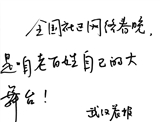 全国社区网络春晚，
是咱老百姓自己的大
舞台！
武汉存维